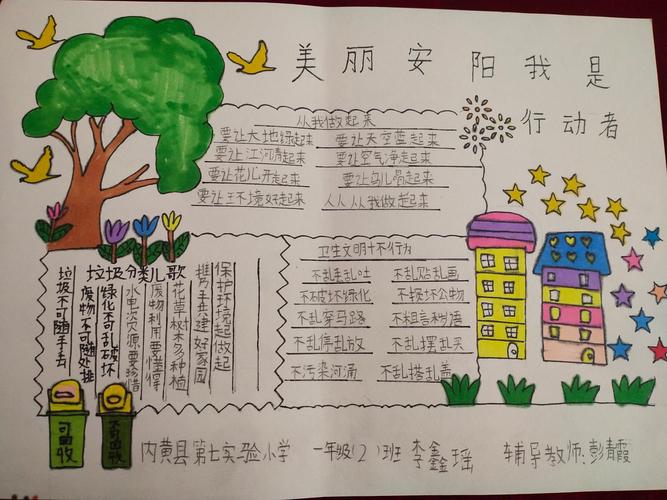 美丽安阳我是
行动者
从我做起来
要让大地绿起来 要让天空蓝起来
要让江河清起来 要让空气净起来
要让花儿开起来 要让鸟儿多起来
要让王不境好起来 人人从我做起来
垃圾分类儿歌
垃圾不可随手丢
废物不可随处堆
绿化不可乱破坏
水电次源要珍惜
废物利用要懂得
花草树木多种植
携手共建好家园
保护环境起做起
卫生文明十不行为
不乱丢乱吐 不乱贴乱画
不破坏绿化 不损坏公物
不乱穿马路 不粗言秽语
不乱停乱放 不乱摆乱买
不污染河涌 不乱搭乱盖
可回收
不可回收
内黄县第七实验小学 一年级(2)班 李鑫瑶 辅导教师:彭青霞